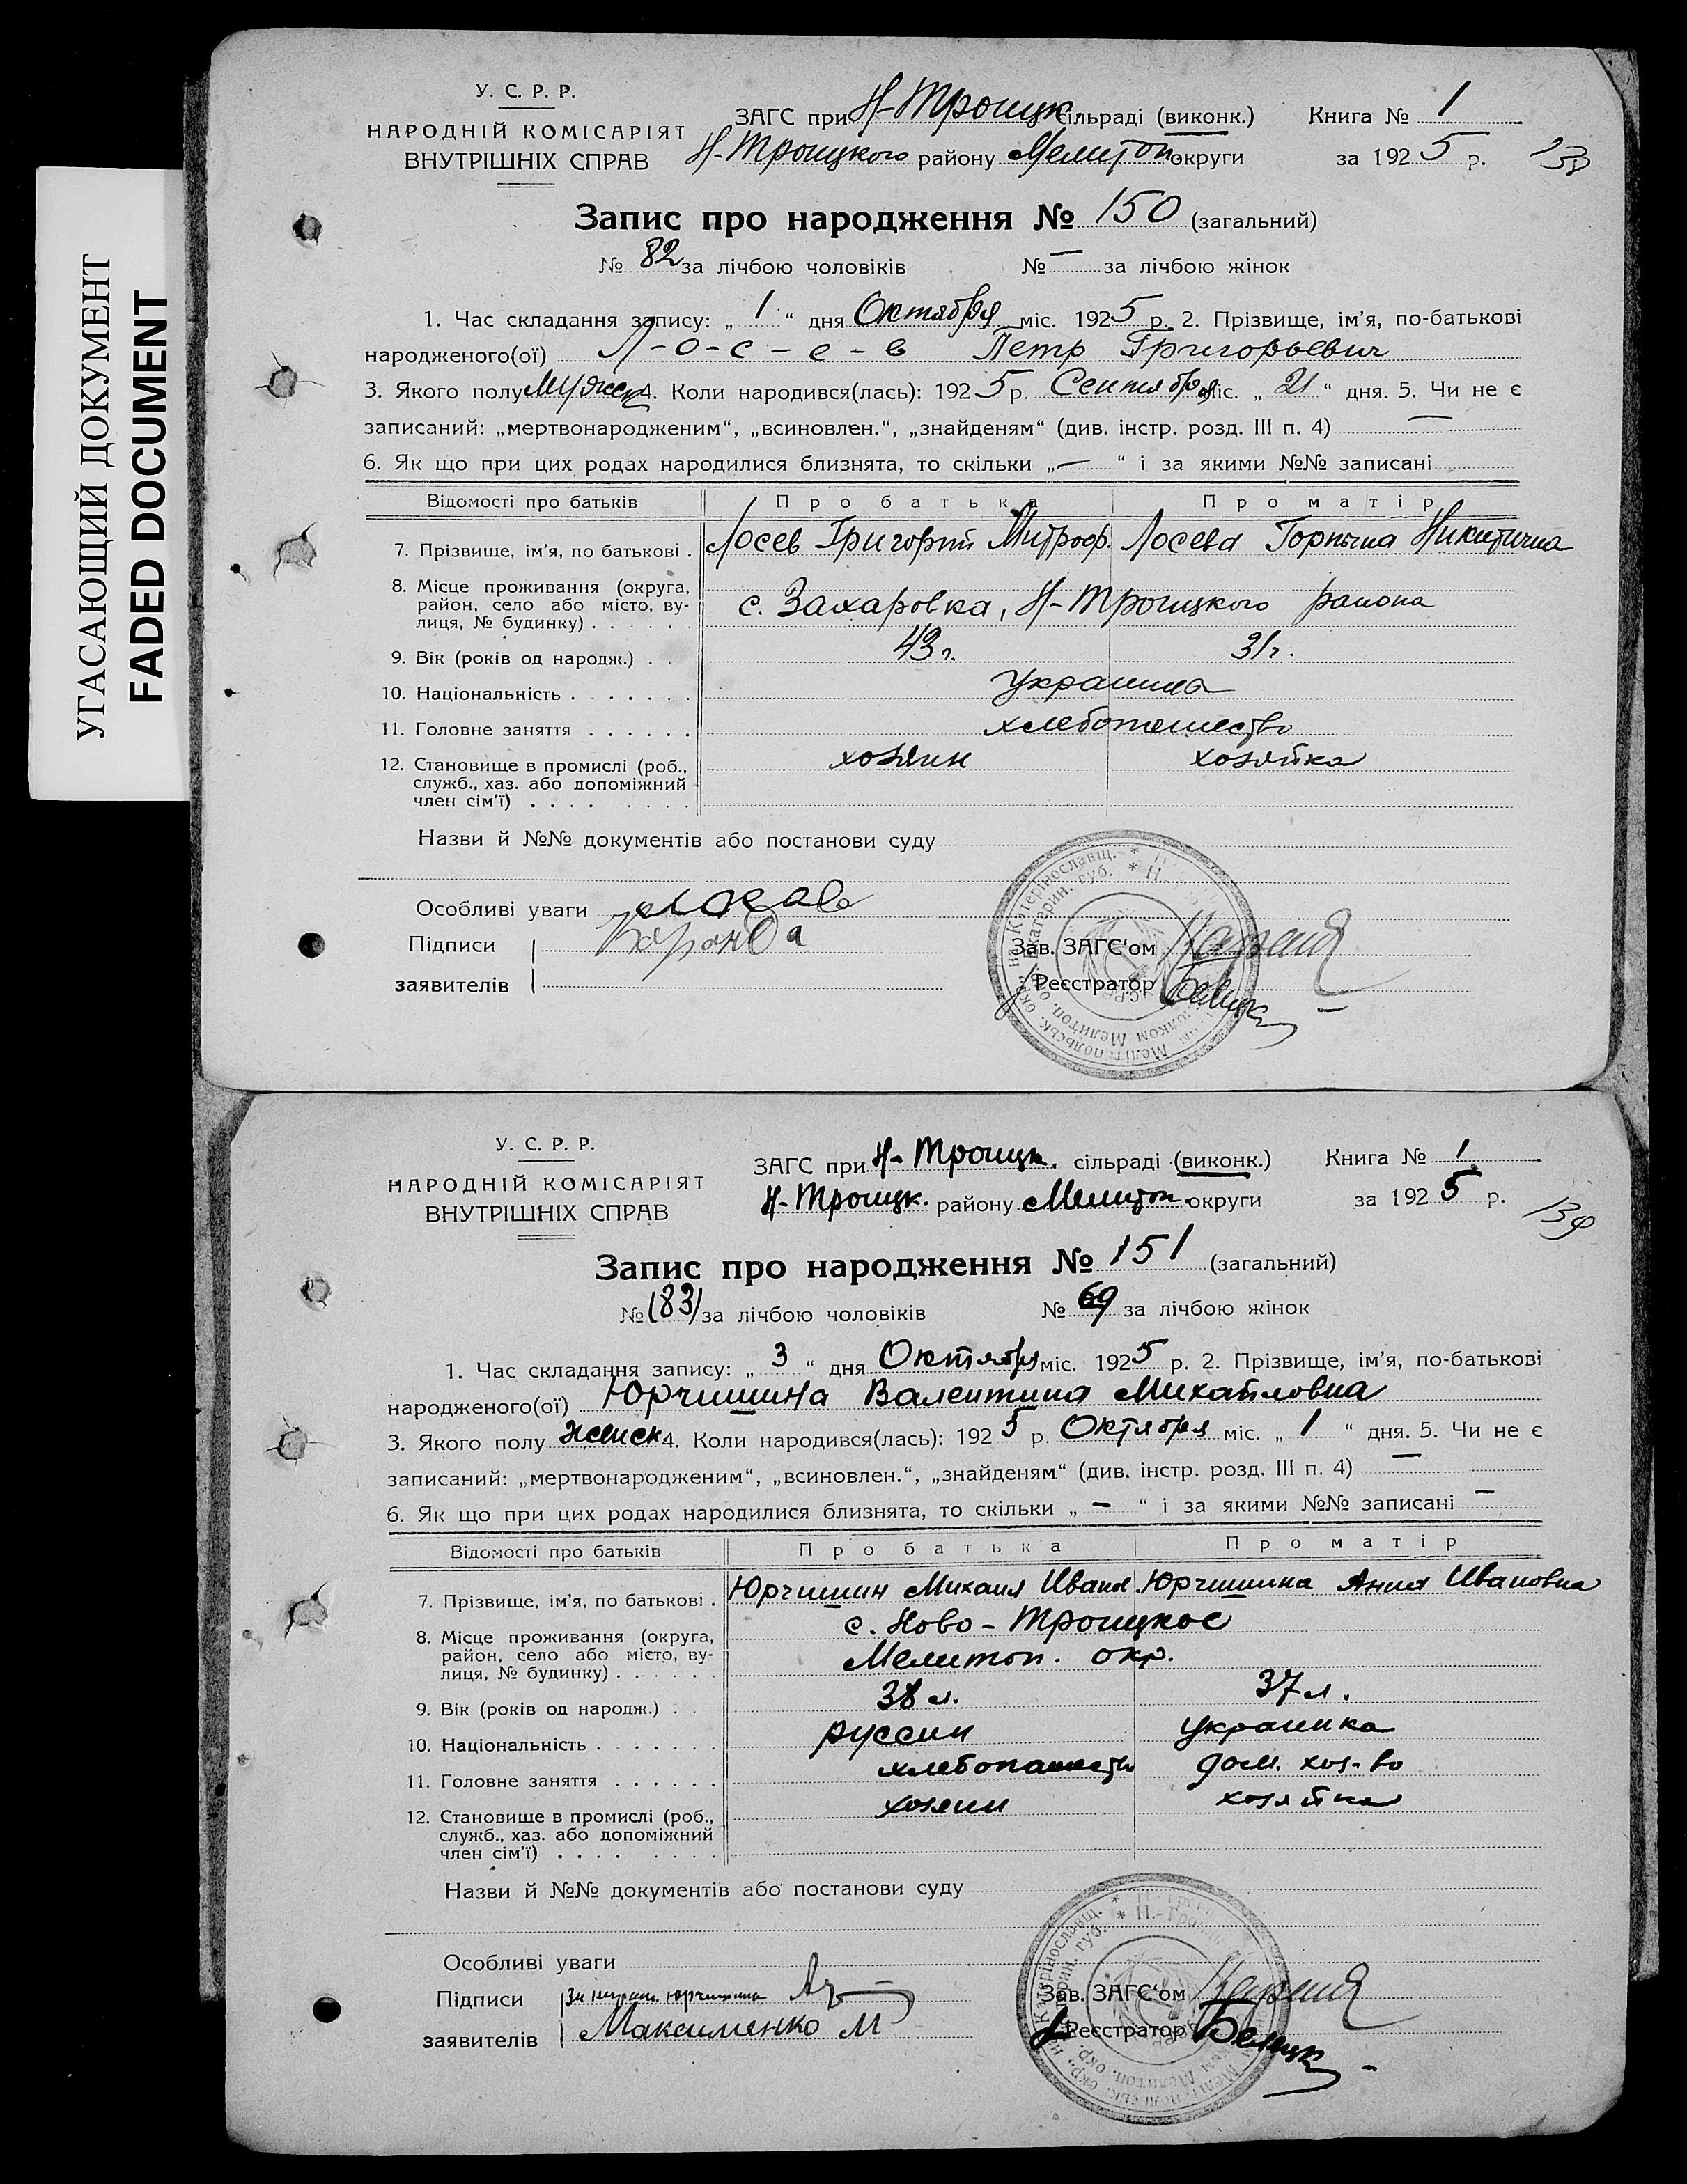 УГАСАЮЩИЙ ДОКУМЕНТ
FADED DOCUMENT
У. С. Р. Р.
НАРОДНІЙ КОМІСАРІЯТ
ВНУТРІШНІХ СПРАВ
ЗАГС при Н-Троицк. сільраді (виконк.) Книга № 1
Н-Троицкого району Мелитоп. округи за 1925 р. 138
Запис про народження № 150 (загальний)
№ 82 за лічбою чоловіків № — за лічбою жінок
1. Час складання запису: „ 1 “ дня Октября міс. 1925 р. 2. Прізвище, ім’я, по-батькові
народженого(ої) Л-о-с-е-в Петр Григорьевич
3. Якого полу Мужск 4. Коли народився(лась): 1925 р. Сентября міс. „ 21 “ дня. 5. Чи не є
записаний: „мертвонародженим“, „всиновлен.“, „знайденям“ (див. інстр. розд. III п. 4) —
6. Як що при цих родах народилися близнята, то скільки „ — “ і за якими №№ записані
Відомості про батьків Про батька Про матір
7. Прізвище, ім’я, по батькові . Лосев Григорий Митроф. Лосева Горпына Никитична
8. Місце проживання (округа, район, село або місто, вулиця, № будинку) . . . . . с. Захаровка, Н-Троицкого района
9. Вік (років од народж.) . . 43 г. 31 г.
10. Національність . . . . . . . украинца
11. Головне заняття . . . . . . хлебопашество
12. Становище в промислі (роб., служб., хаз. або допоміжний член сім’ї) . . . . . . . . хозяин хозяйка
Назви й №№ документів або постанови суду
Особливі уваги
Підписи
заявителів
Зав. ЗАГС‘ом
Реєстратор Белецк
У. С. Р. Р.
НАРОДНІЙ КОМІСАРІЯТ
ВНУТРІШНІХ СПРАВ
ЗАГС при Н-Троицк. сільраді (виконк.) Книга № 1
Н-Троицк. району Мелитоп. округи за 1925 р. 139
Запис про народження № 151 (загальний)
№ (83) за лічбою чоловіків № 69 за лічбою жінок
1. Час складання запису: „ 3 “ дня Октября міс. 1925 р. 2. Прізвище, ім’я, по-батькові
народженого(ої) Юрчишина Валентина Михайловна
3. Якого полу женск 4. Коли народився(лась): 1925 р. Октября міс. „ 1 “ дня. 5. Чи не є
записаний: „мертвонародженим“, „всиновлен.“, „знайденям“ (див. інстр. розд. III п. 4) —
6. Як що при цих родах народилися близнята, то скільки „ — “ і за якими №№ записані —
Відомості про батьків Про батька Про матір
7. Прізвище, ім’я, по батькові . Юрчишин Михаил Иванов. Юрчишина Анна Ивановна
8. Місце проживання (округа, район, село або місто, вулиця, № будинку) . . . . . с. Ново-Троицкое
Мелитоп. окр.
9. Вік (років од народж.) . . 38 л. 37 л.
10. Національність . . . . . . . руссин украинка
11. Головне заняття . . . . . . хлебопашеств дом. хоз-во
12. Становище в промислі (роб., служб., хаз. або допоміжний член сім’ї) . . . . . . . . хозяин хозяйка
Назви й №№ документів або постанови суду
Особливі уваги
Підписи
заявителів Максименко М
Зав. ЗАГС‘ом
Реєстратор Белецк